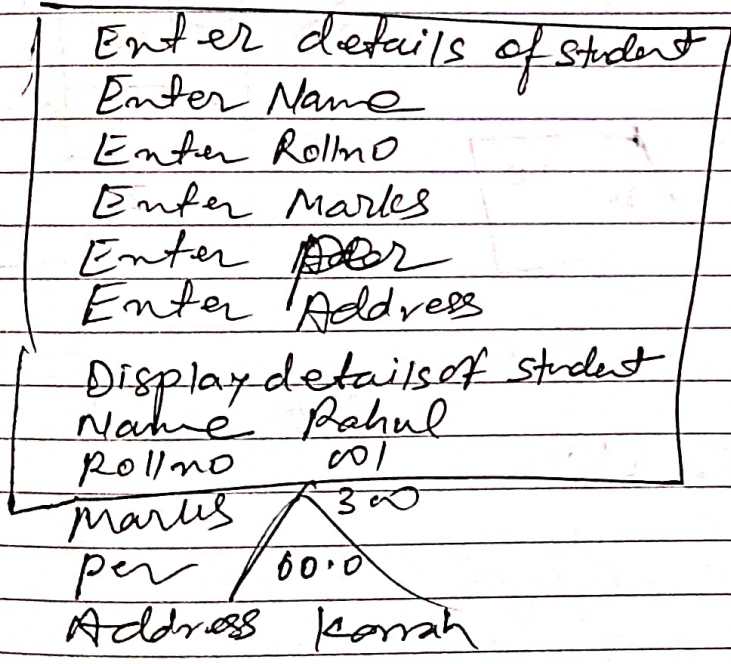 Enter details of student
Enter Name
Enter Rollno
Enter Marks
Enter
Enter Address
Display details of student
Name Rahul
Rollno 001
Marks 300
Per 60.0
Address